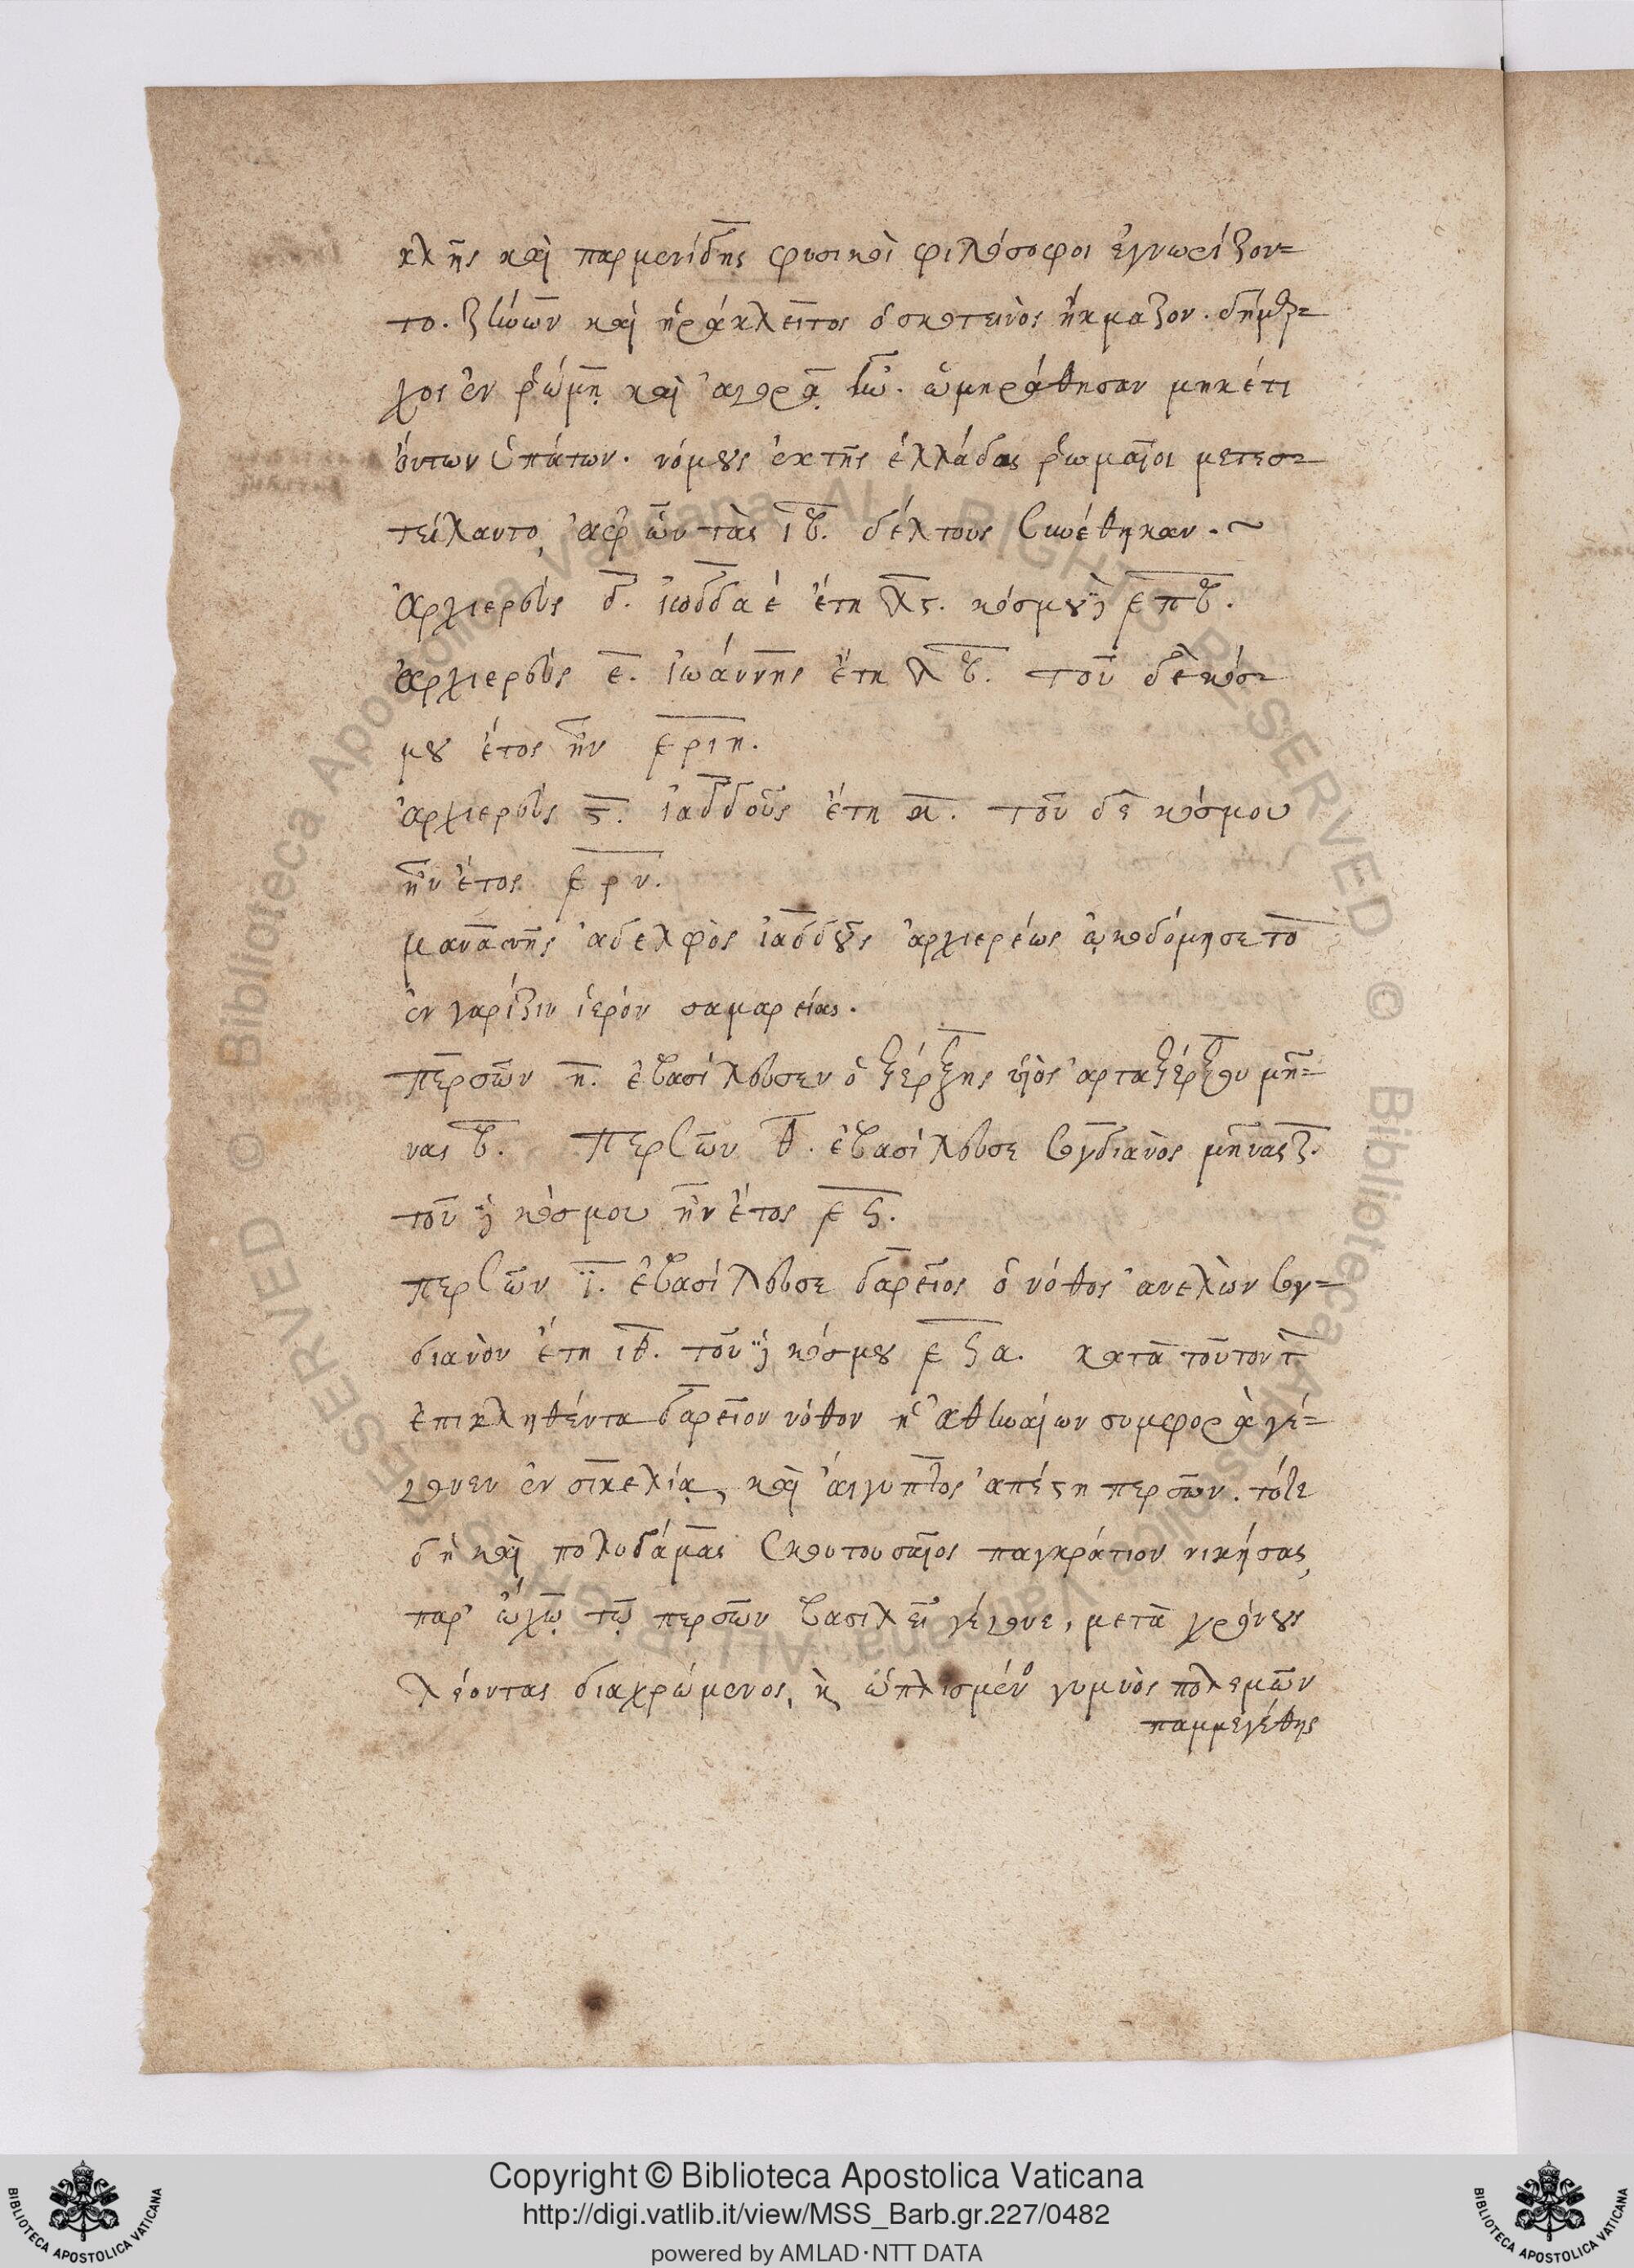 κλῆς καὶ παρμενίδης φυσικοὶ φιλόσοφοι ἐγνωρίζον=
το. ζήνων καὶ ἡράκλειτος ὁ σκοτεινὸς ἤκμαζον. δήμαρ=
χος ἐν ῥώμῃ καὶ ἀγορὰ ἦν. ὡμηράθησαν μηκέτι
ὄντων ὑπάτων. νόμους ἐκ τῆς ἑλλάδας ῥωμαῖοι μετεσ=
τείλαντο, ἀφ' ὧν τὰς ιβ. δέλτους συνέθηκαν. ~
ἀρχιερεὺς δ. ἰωδδαὲ ἔτη λϛ. κόσμου δὲ ͵επβ.
ἀρχιερεὺς ε. ἰωάννης ἔτη λβ. τοῦ δὲ κόσ=
μου ἔτος ἦν ͵εριη.
ἀρχιερεὺς ϛ. ἰαδδοῦς ἔτη κ. τοῦ δὲ κόσμου
ἦν ἔτος ͵ερν.
μανασσῆς ἀδελφὸς ἰαδδοῦς ἀρχιερέως ᾠκοδόμησε τὸ
ἐν γαρίζιν ἱερόν σαμαρείας.
περσῶν η. ἐβασίλευσεν ὁ ξέρξης υἱὸς ἀρταξέρξου μῆ=
νας β. περσῶν θ. ἐβασίλευσε σογδιανὸς μῆνας ζ.
τοῦ δὲ κόσμου ἦν ἔτος ͵εϟ.
περσῶν ϊ. ἐβασίλευσε δαρεῖος ὁ νόθος ἀνελὼν σογ=
διανὸν ἔτη ιθ. τοῦ δὲ κόσμου ͵εϟα. κατὰ τοῦτον τ
ἐπικληθέντα δαρεῖον νόθον ἡ ἀθηναίων συμφορὰ γέ=
γονεν ἐν σικελίᾳ, καὶ αἴγυπτος ἀπέστη περσῶν. τότε
δὴ καὶ πολυδάμας σκοτουσαῖος παγκράτιον νικήσας,
παρ' ὤχῳ τῷ περσῶν βασιλεῖ γέγονε, μετὰ χρόνους
λέοντας διαχρώμενος, κ ὡπλισμένο γυμνὸς πολεμῶν
παμμεγέθης
Copyright © Biblioteca Apostolica Vaticana
http://digi.vatlib.it/view/MSS_Barb.gr.227/0482
powered by AMLAD·NTT DATA
BIBLIOTECA APOSTOLICA VATICANA
BIBLIOTECA APOSTOLICA VATICANA